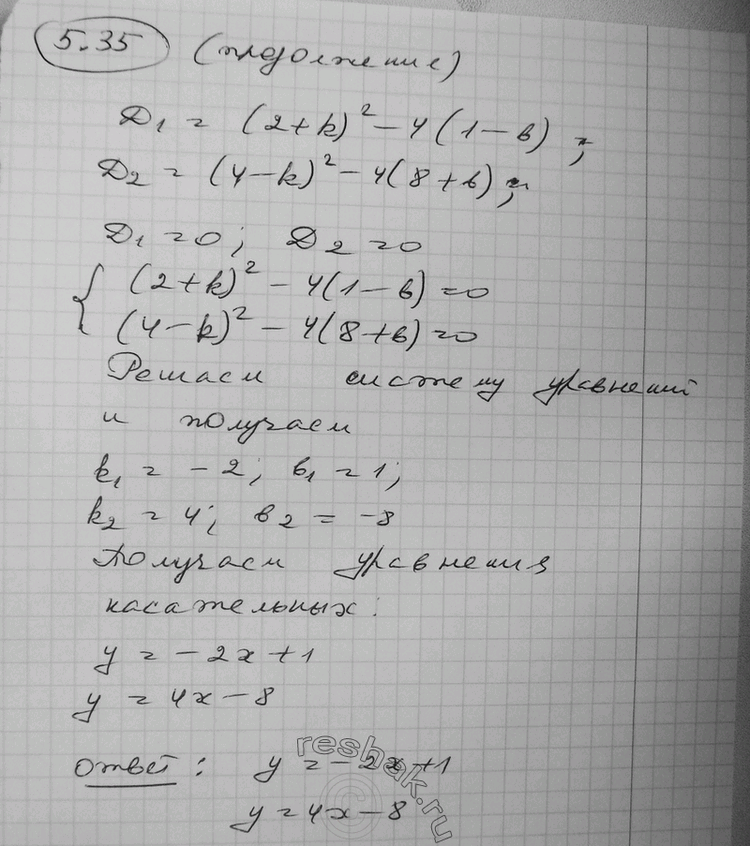 5.35 (продолжение)
D₁ = (2+k)² − 4(1−b);
D₂ = (4−k)² − 4(8+b);
D₁ = 0; D₂ = 0
{ (2+k)² − 4(1−b) = 0
(4−k)² − 4(8+b) = 0
Решаем систему уравнений
и получаем
k₁ = −2; b₁ = 1;
k₂ = 4; b₂ = −8
Получаем уравнения
касательных:
y = −2x+1
y = 4x−8
Ответ: y = −2x+1
y = 4x−8
reshak.ru